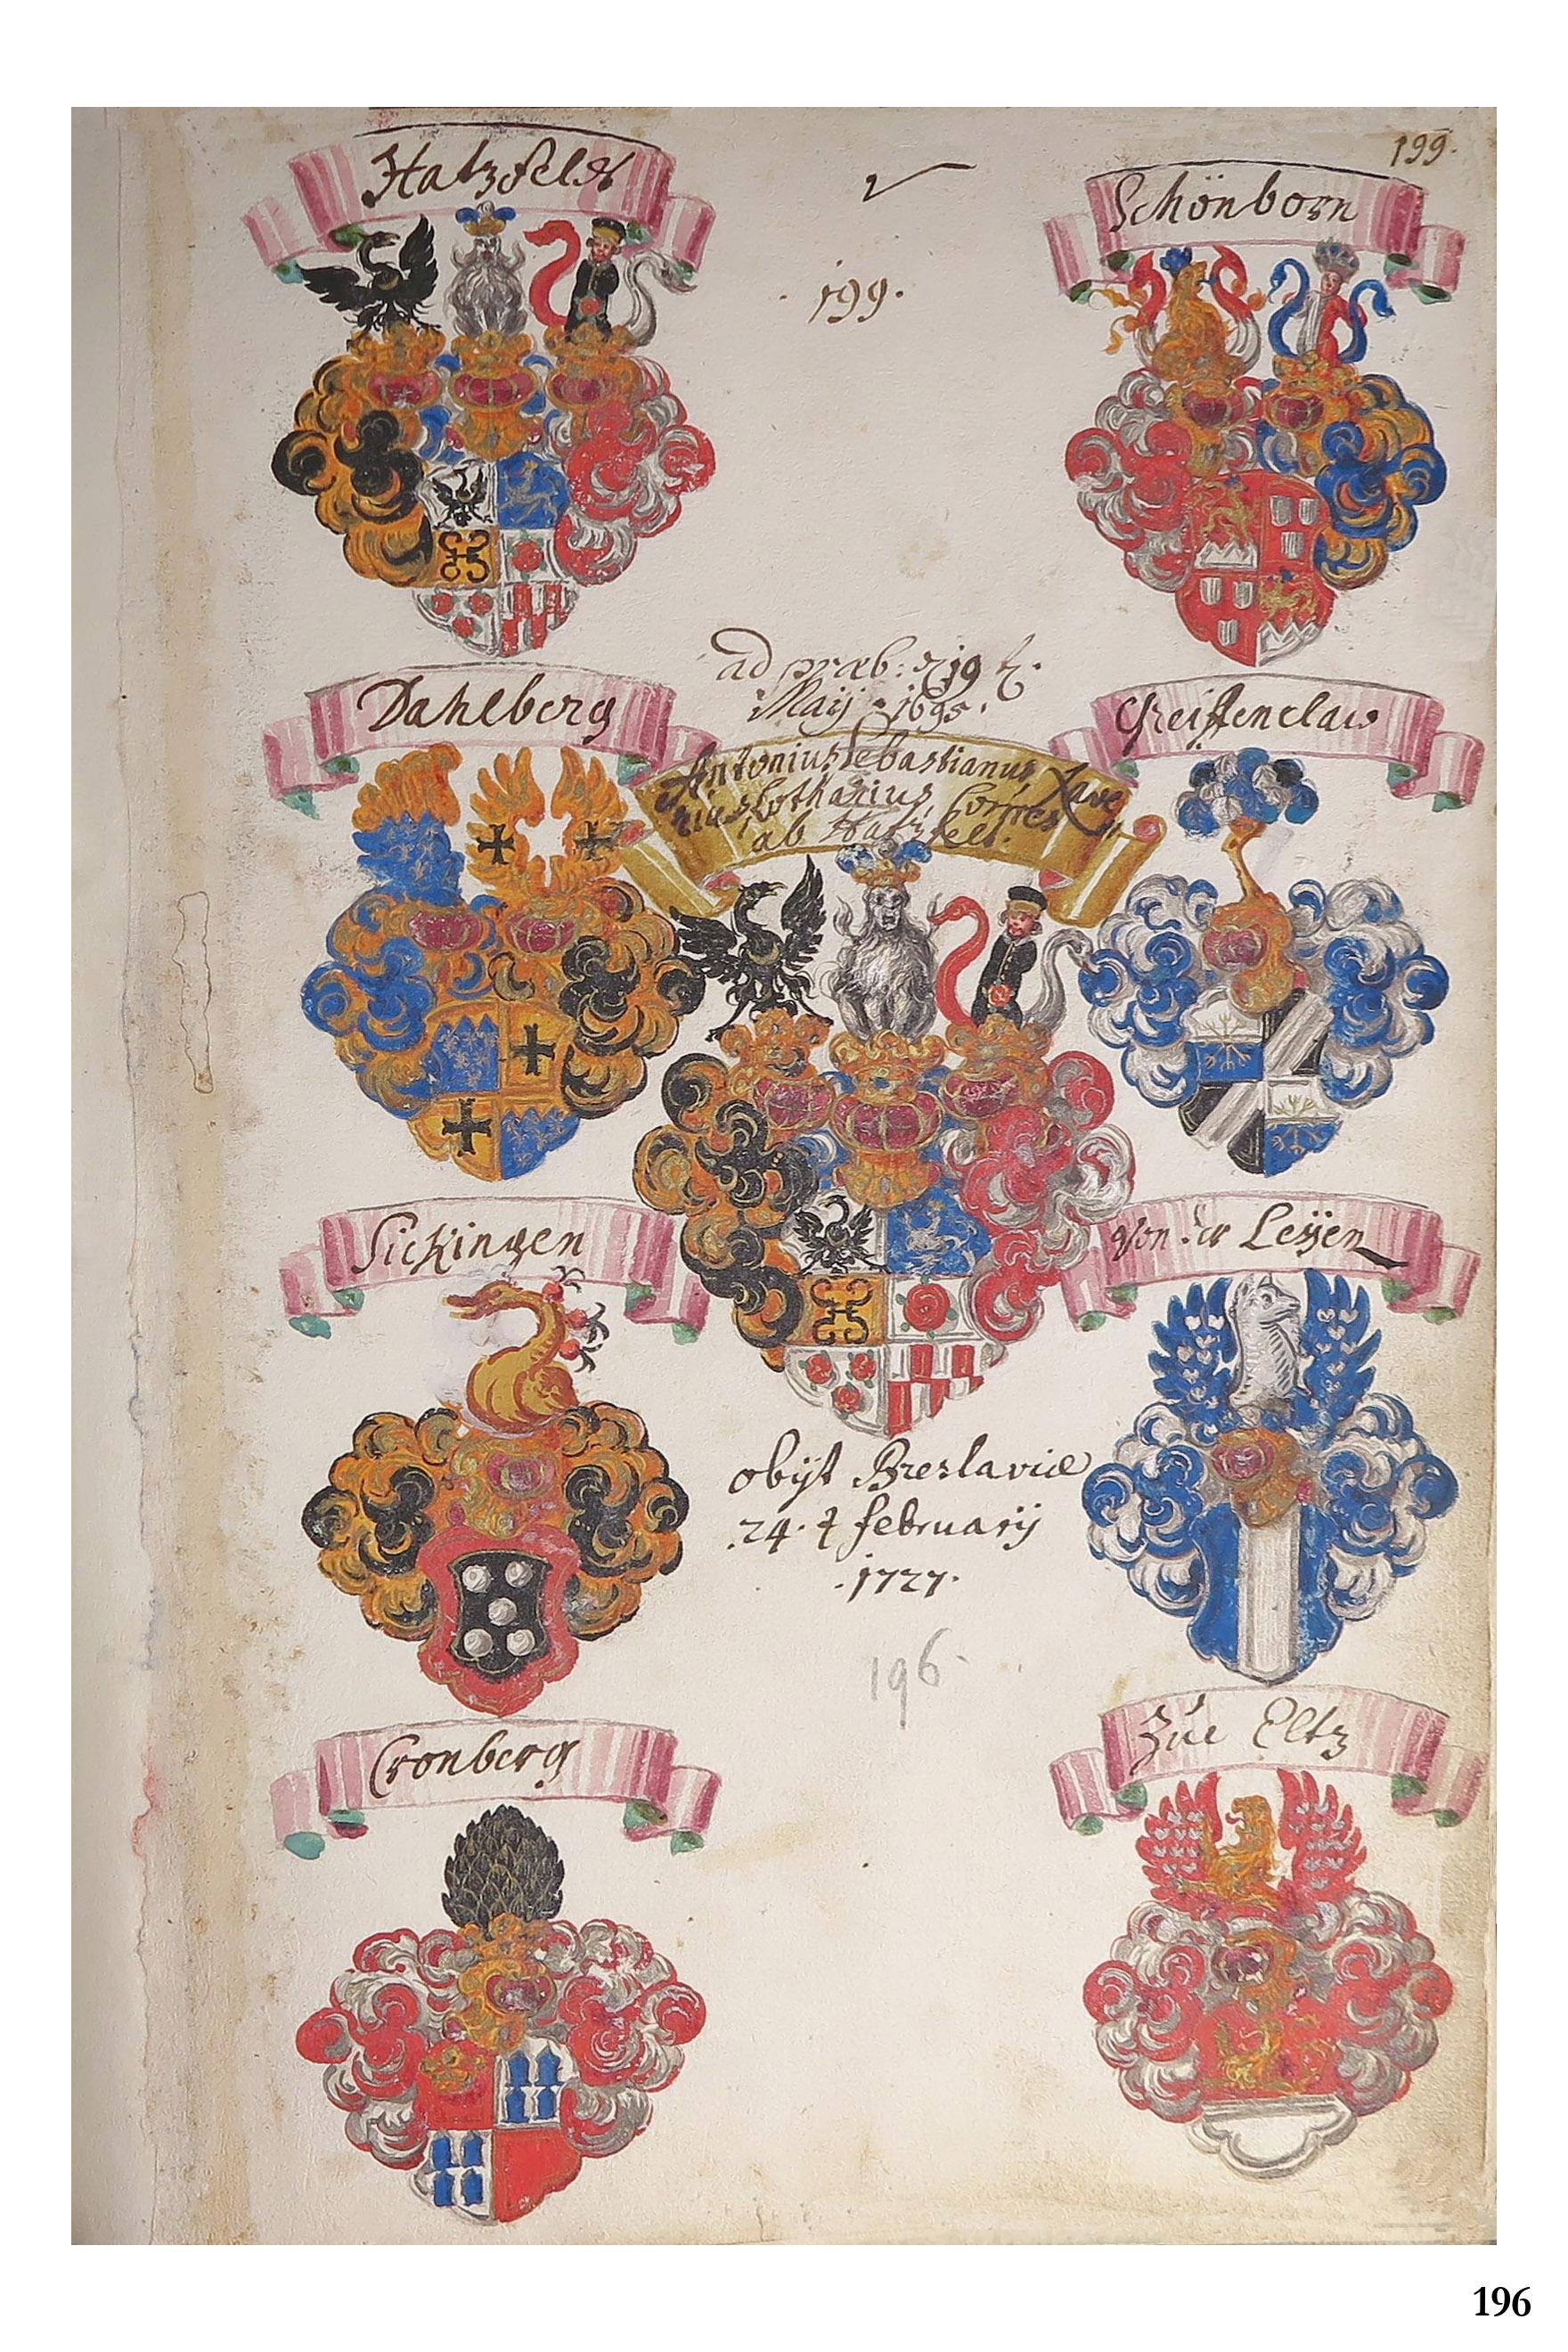 199.
Hatzfeldt
Schönborn
199.
ad præb: 19
Maij 1695.
Dahlberg
Greiffenclaw
Antonius Sebastianus Xave
rius Lotharius, Comes
ab Hatzfelt.
Sickingen
Von der Leÿen
obijt Breslaviæ
24. februarij
.1727.
196
Cronberg
Zue Eltz
196